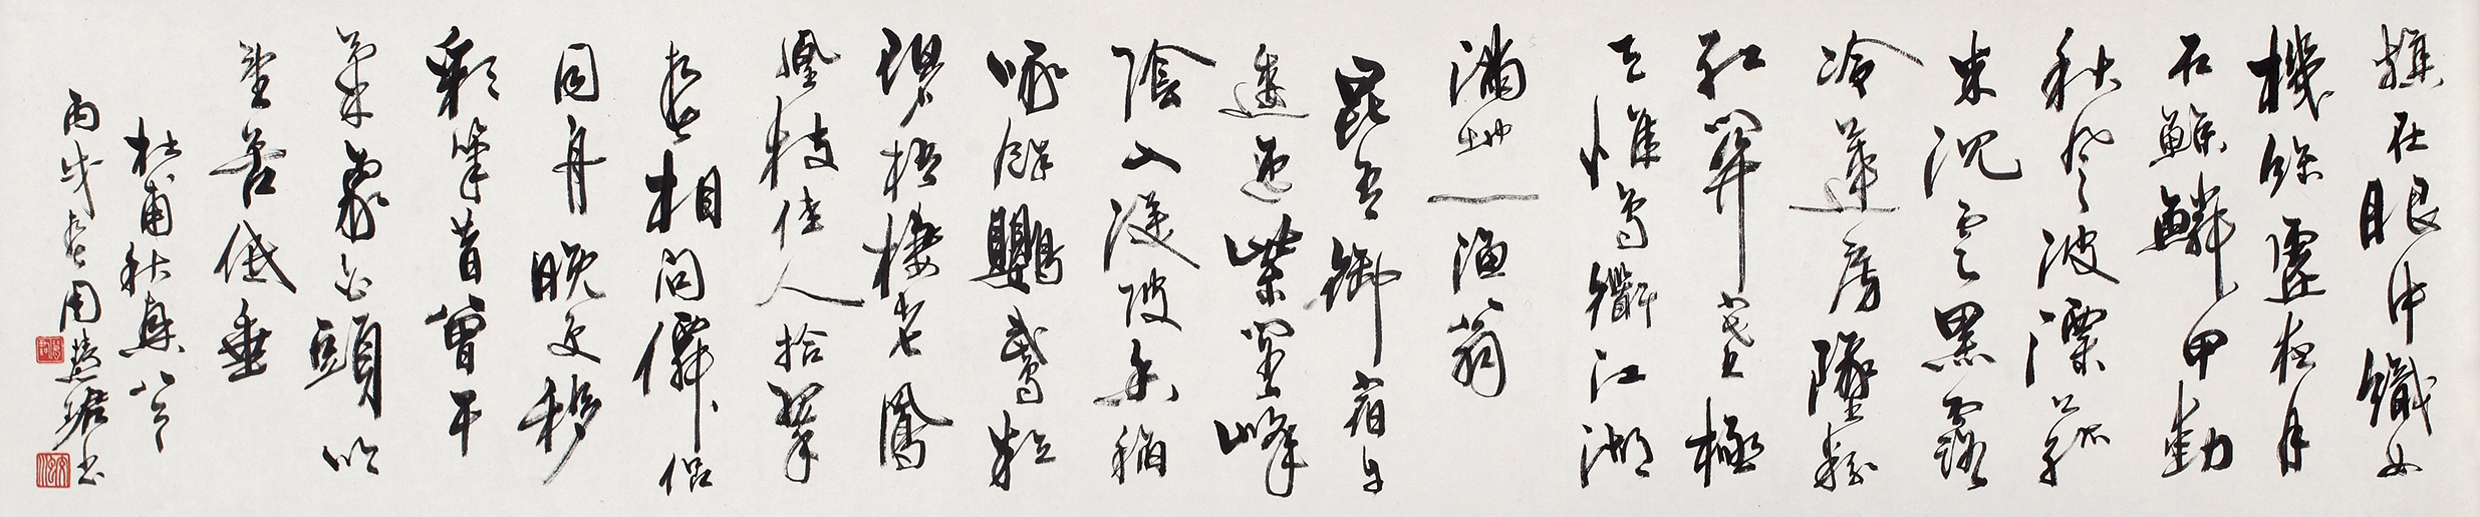 旗在眼中織女
機絲虛夜月
石鯨鱗甲動
秋風波漂菰
米沉雲黑露
冷蓮房墜粉
紅關塞極
天惟鳥衜江湖
滿地一漁翁
昆吾御宿自
逶迤紫閣峰
陰入渼陂香稻
啄餘鸚鵡粒
碧梧棲老鳳
凰枝佳人拾翠
春相問僊侶
同舟晚更移
彩筆昔曾干
氣象白頭吟
望苦低垂
杜甫秋興八首
丙戌春周慧珺書